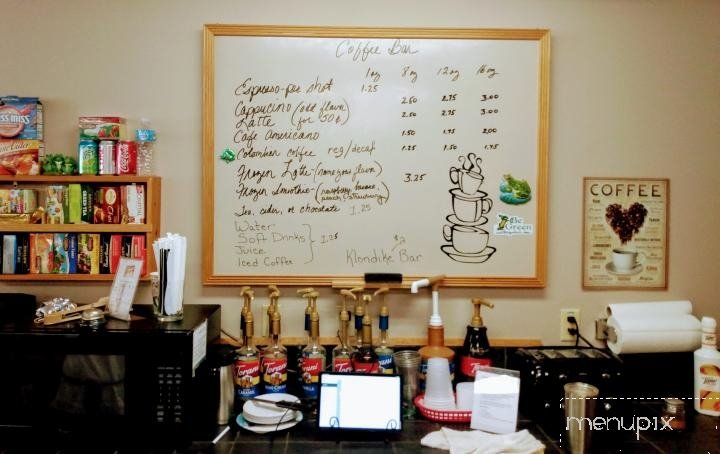 Coffee Bar
1oz 8oz 12oz 16oz
Espresso-per shot 1.25
Cappucino (add flavor 2.50 2.75 3.00
Latte for 50¢) 2.50 2.75 3.00
Cafe Americano 1.50 1.75 2.00
Colombian coffee reg/decaf 1.25 1.50 1.75
Frozen Latte 3.25
Frozen Smoothie-(raspberry, banana,
peach, strawberry)
Tea, cider, or chocolate 1.25
Water
Soft Drinks 1.25
Juice
Iced Coffee
Klondike Bar $2
Be Green
COFFEE
SWISS MISS
Torani
Torani
Torani
menupix